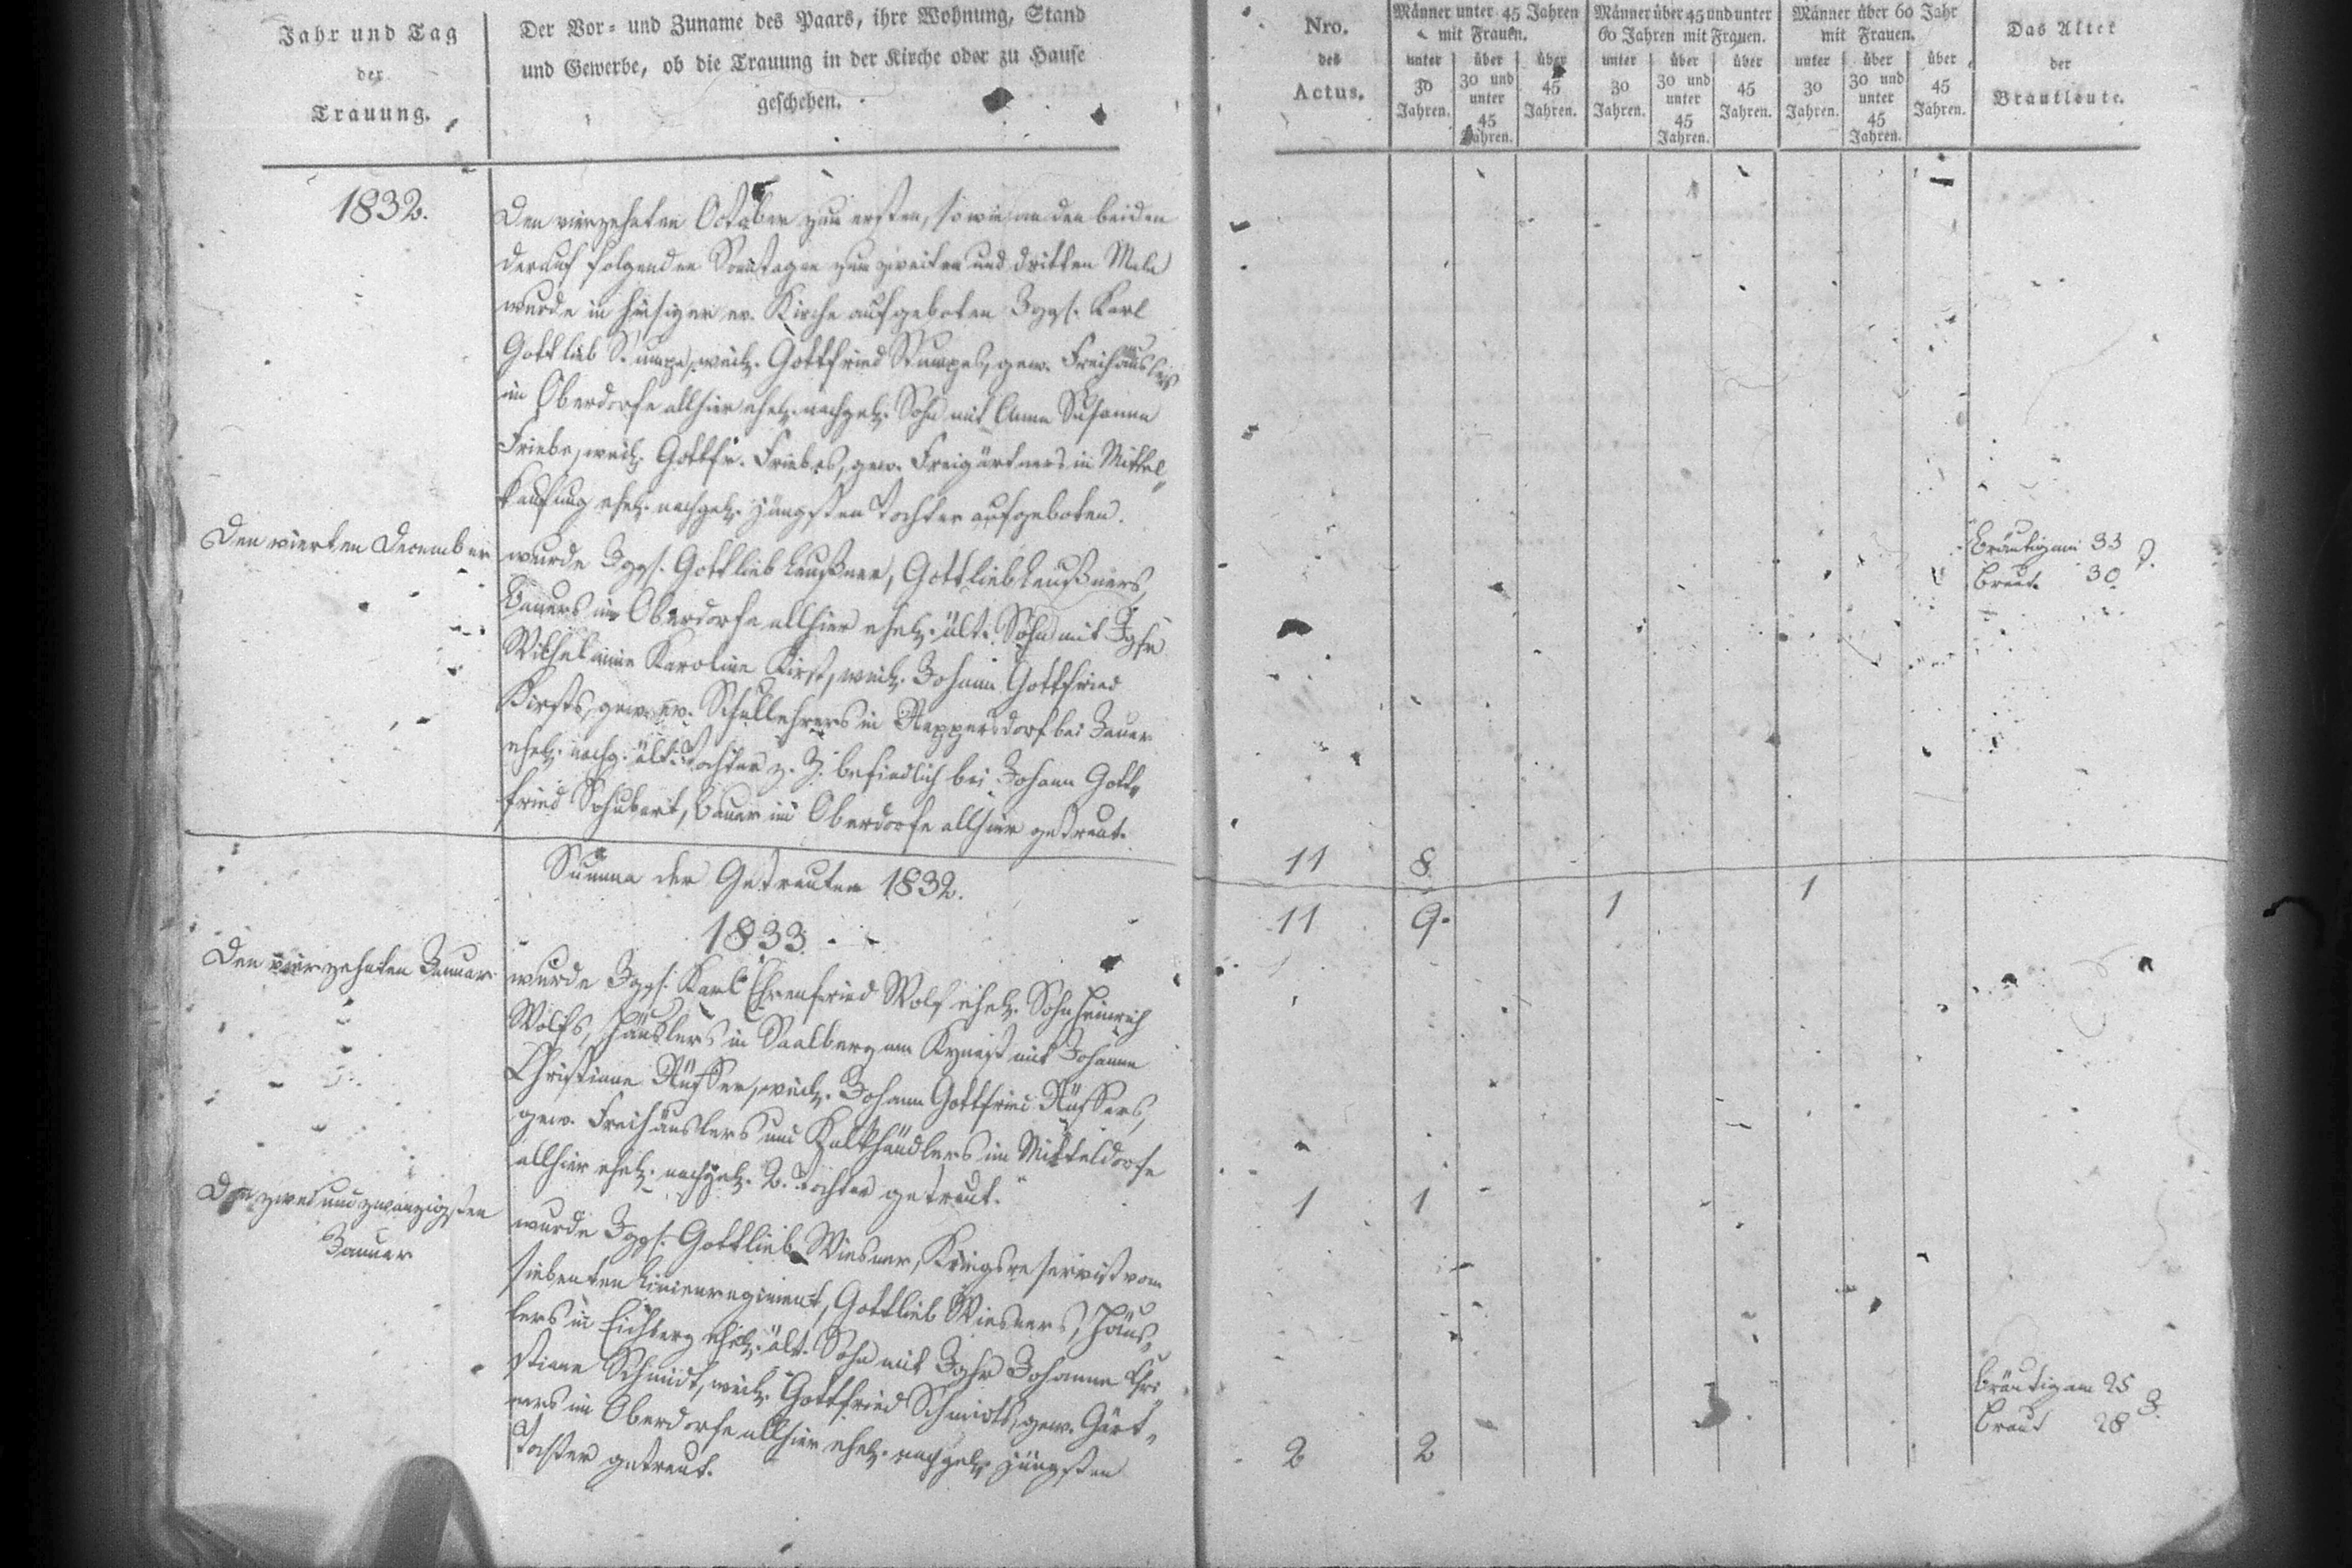 Jahr und Tag
der
Trauung.
Der Vor- und Zuname des Paars, ihre Wohnung, Stand
und Gewerbe, ob die Trauung in der Kirche oder zu Hause
geschehen.
Nro.
des
Actus.
Männer unter 45 Jahren
mit Frauen.
unter 30 Jahren.
über 30 und unter 45 Jahren.
über 45 Jahren.
Männer über 45 und unter
60 Jahren mit Frauen.
unter 30 Jahren.
über 30 und unter 45 Jahren.
über 45 Jahren.
Männer über 60 Jahr
mit Frauen.
unter 30 Jahren.
über 30 und unter 45 Jahren.
über 45 Jahren.
Das Alter
der
Brautleute.
1832.
Den vierzehnten October zum ersten, sowie an den beiden
darauf folgenden Sonntagen zum zweiten und dritten Male
wurde in hiesiger ev. Kirche aufgeboten Jggs. Karl
Gottlieb Stumpe, weil. Gottfried Stumpes, gew. Freihäuslers
im Oberdorfe allhier ehel. nachgel. Sohn mit Anna Susanna
Friebe, weil. Gottfr. Friebes, gew. Freigärtners in Mittel-
kauffung ehel. nachgel. jüngsten Tochter aufgeboten.
Den vierten December
wurde Jggs. Gottlieb Leußner, Gottlieb Leußners,
Bauers im Oberdorfe allhier ehel. ält. Sohn mit Jgfr
Wilhelmine Karoline Kirst, weil. Johann Gottfried
Kirsts, gew. ev. Schullehrers in Reppersdorf bei Jauer
ehel. nachg. ält. Tochter z. Z. befindlich bei Johann Gott-
fried Schubert, Bauer im Oberdorfe allhier getraut.
Bräutigam 33
Braut 30
J.
11 8
Summa der Getrauten 1832.
11 9. 1 1
1833.
Den vierzehnten Januar
wurde Jggs. Karl Ehrenfried Wolf ehel. Sohn Heinrich
Wolfs, Häuslers in Saalberg am Kynast mit Johanne
Christiane Rüffer, weil. Johann Gottfried Rüffers,
gew. Freihäuslers und Kalkhändlers im Mitteldorfe
allhier ehel. nachgel. 2. Tochter getraut.
1 1
Den zwei und zwanzigsten
Januar
wurde Jggs. Gottlieb Wiesner, Kriegsreservist vom
siebenten Linienregiment, Gottlieb Wiesners, Häus-
lers in Eichberg ehel. ält. Sohn mit Jgfr Johanne Chri-
stiane Schmidt, weil. Gottfried Schmidts, gew. Gärt-
ners im Oberdorfe allhier ehel. nachgel. jüngsten
Tochter getraut.
Bräutigam 25
Braut 28
J.
2 2